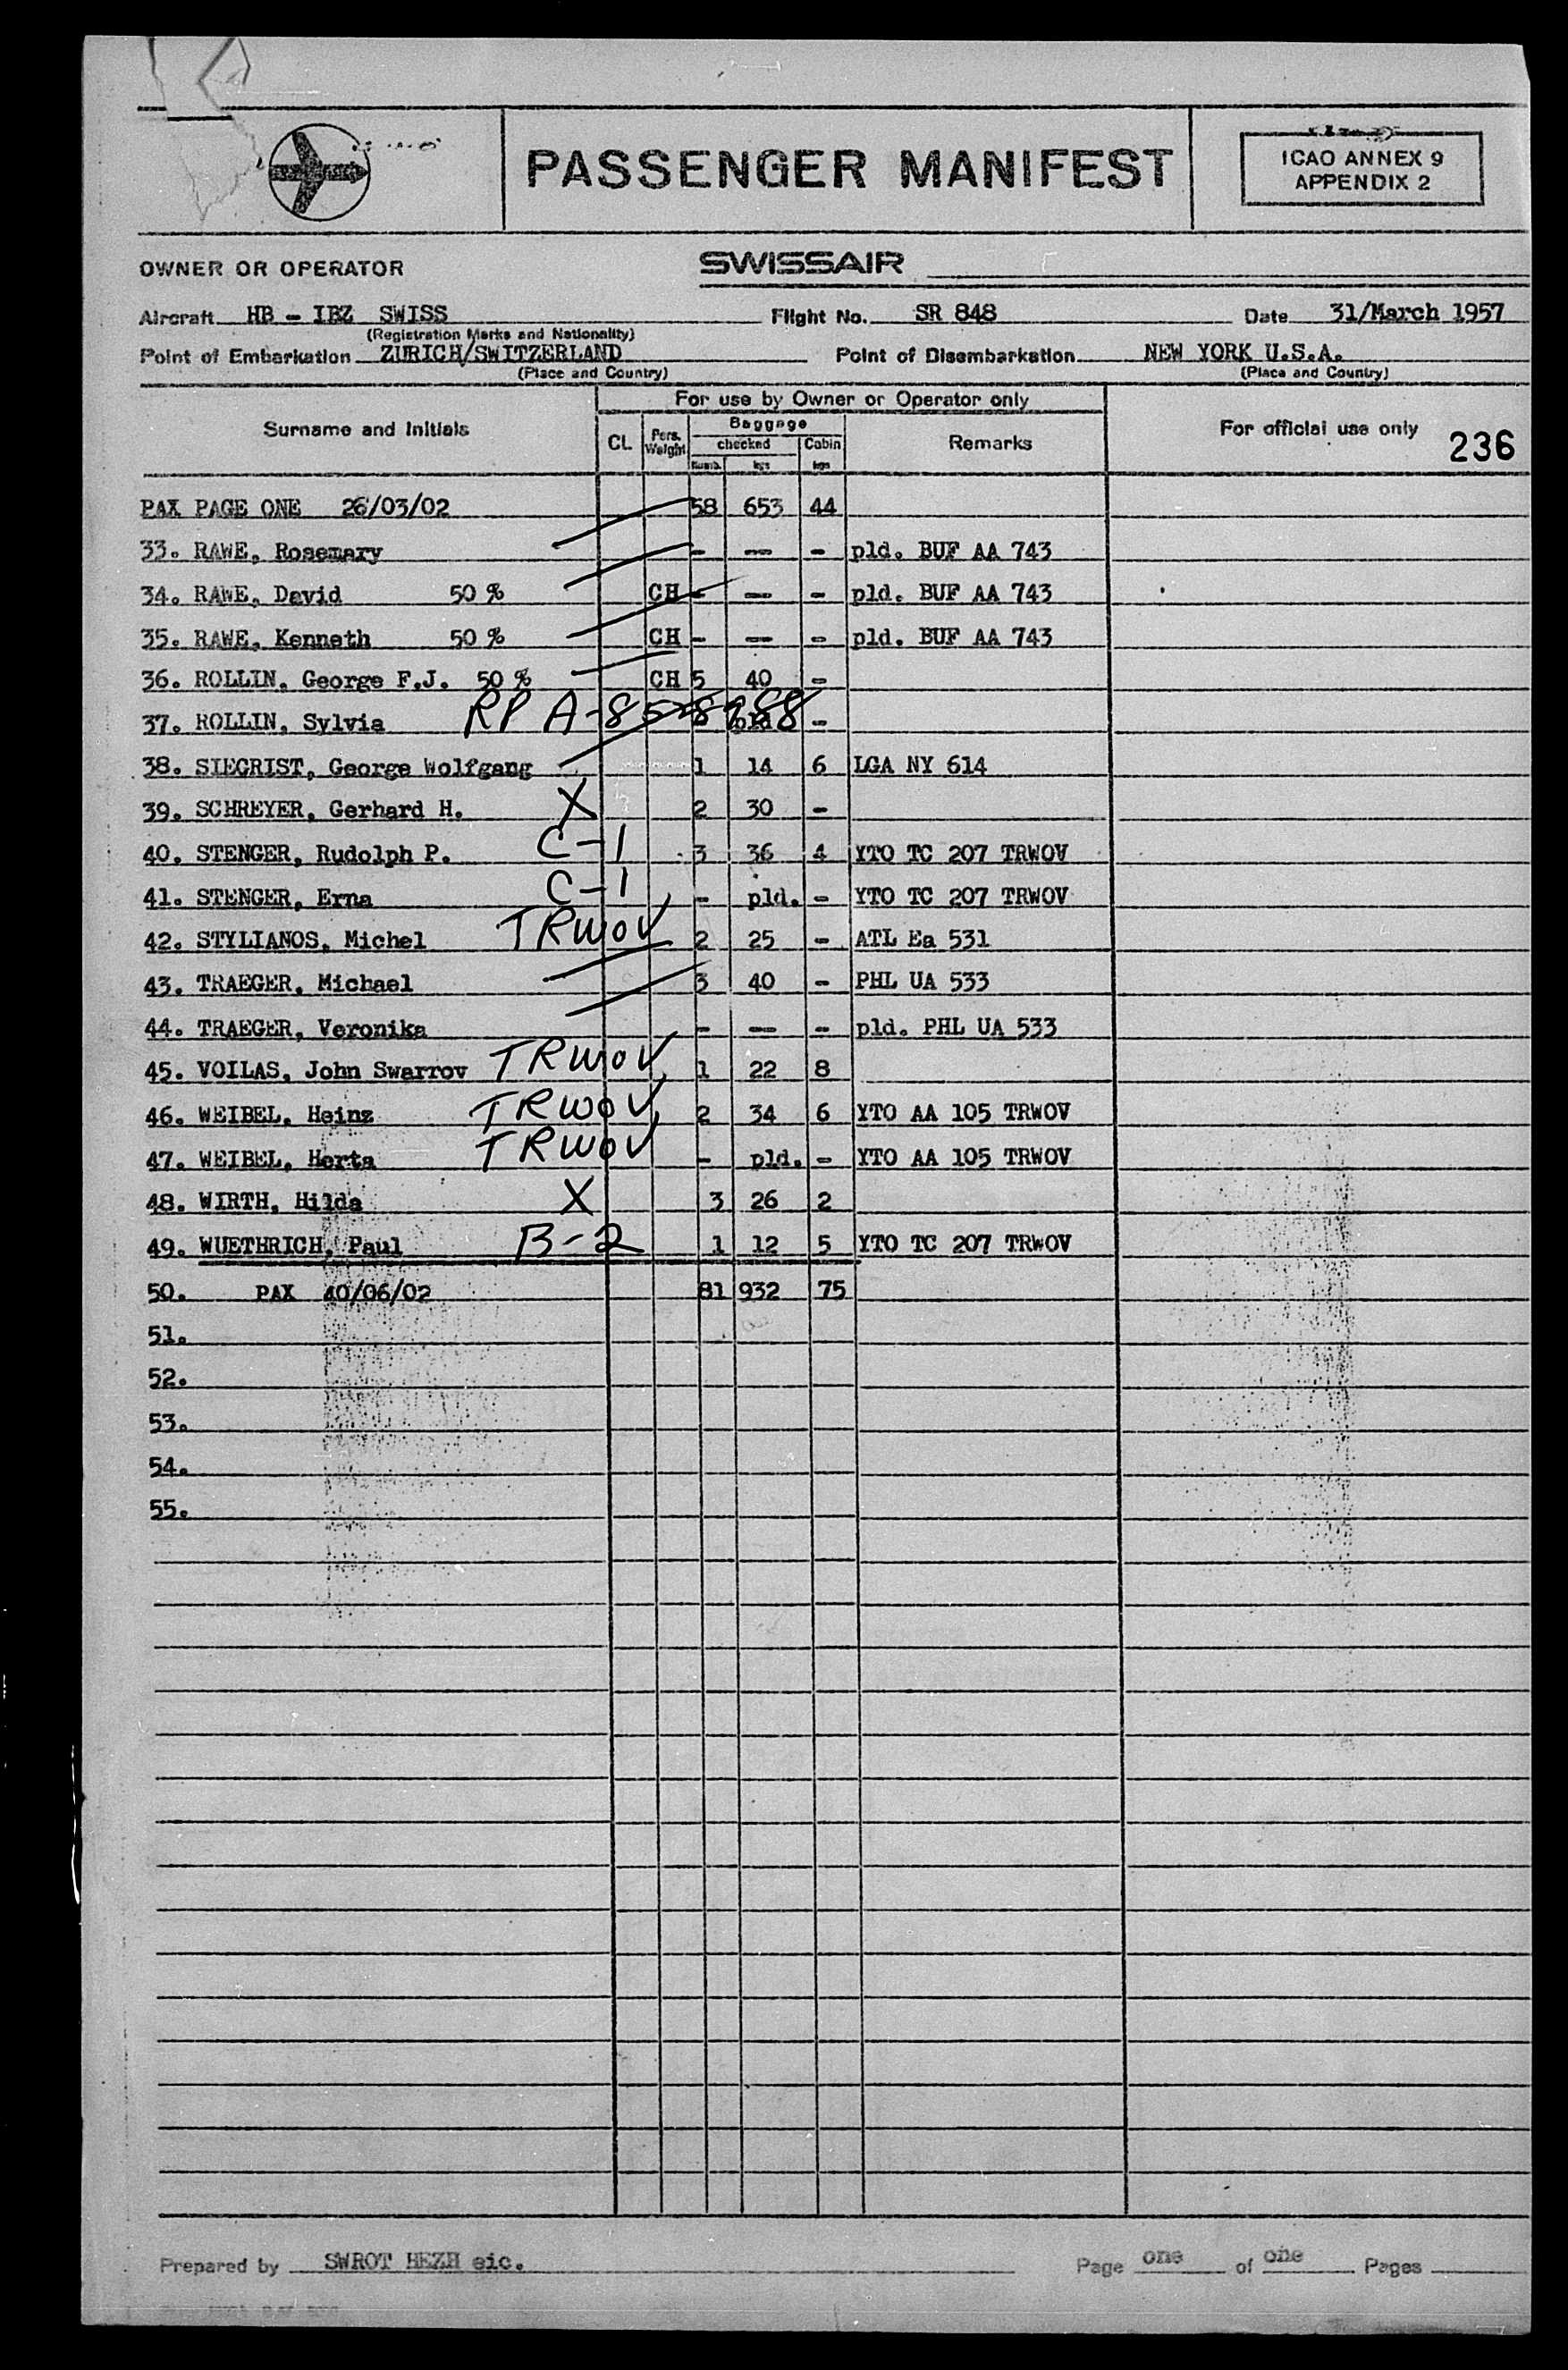 PASSENGER MANIFEST
ICAO ANNEX 9
APPENDIX 2
OWNER OR OPERATOR SWISSAIR
Aircraft HB - IBZ SWISS Flight No. SR 848 Date 31/March 1957
(Registration Marks and Nationality)
Point of Embarkation ZURICH/SWITZERLAND Point of Disembarkation NEW YORK U.S.A.
(Place and Country) (Place and Country)
For use by Owner or Operator only
Surname and Initials CL Pers. Weight Baggage checked Numb. kgs Cabin kgs Remarks For official use only 236
PAX PAGE ONE 26/03/02 58 653 44
33. RAWE, Rosemary - -- - pld. BUF AA 743
34. RAWE, David 50 % CH - -- - pld. BUF AA 743
35. RAWE, Kenneth 50 % CH - -- - pld. BUF AA 743
36. ROLLIN, George F.J. 50 % CH 5 40 -
37. ROLLIN, Sylvia RP A-8 -
38. SIEGRIST, George Wolfgang 1 14 6 LGA NY 614
39. SCHREYER, Gerhard H. X 2 30 -
40. STENGER, Rudolph P. C-1 3 36 4 YTO TC 207 TRWOV
41. STENGER, Erna C-1 - pld. - YTO TC 207 TRWOV
42. STYLIANOS, Michel TRWOV 2 25 - ATL Ea 531
43. TRAEGER, Michael 3 40 - PHL UA 533
44. TRAEGER, Veronika - -- - pld. PHL UA 533
45. VOILAS, John Swarrov TRWOV 1 22 8
46. WEIBEL, Heinz TRWOV 2 34 6 YTO AA 105 TRWOV
47. WEIBEL, Herta TRWOV - pld. - YTO AA 105 TRWOV
48. WIRTH, Hilda X 3 26 2
49. WUETHRICH, Paul B-2 1 12 5 YTO TC 207 TRWOV
50. PAX 40/06/02 81 932 75
51.
52.
53.
54.
55.
Prepared by SWROT HEZH eic. Page one of one Pages